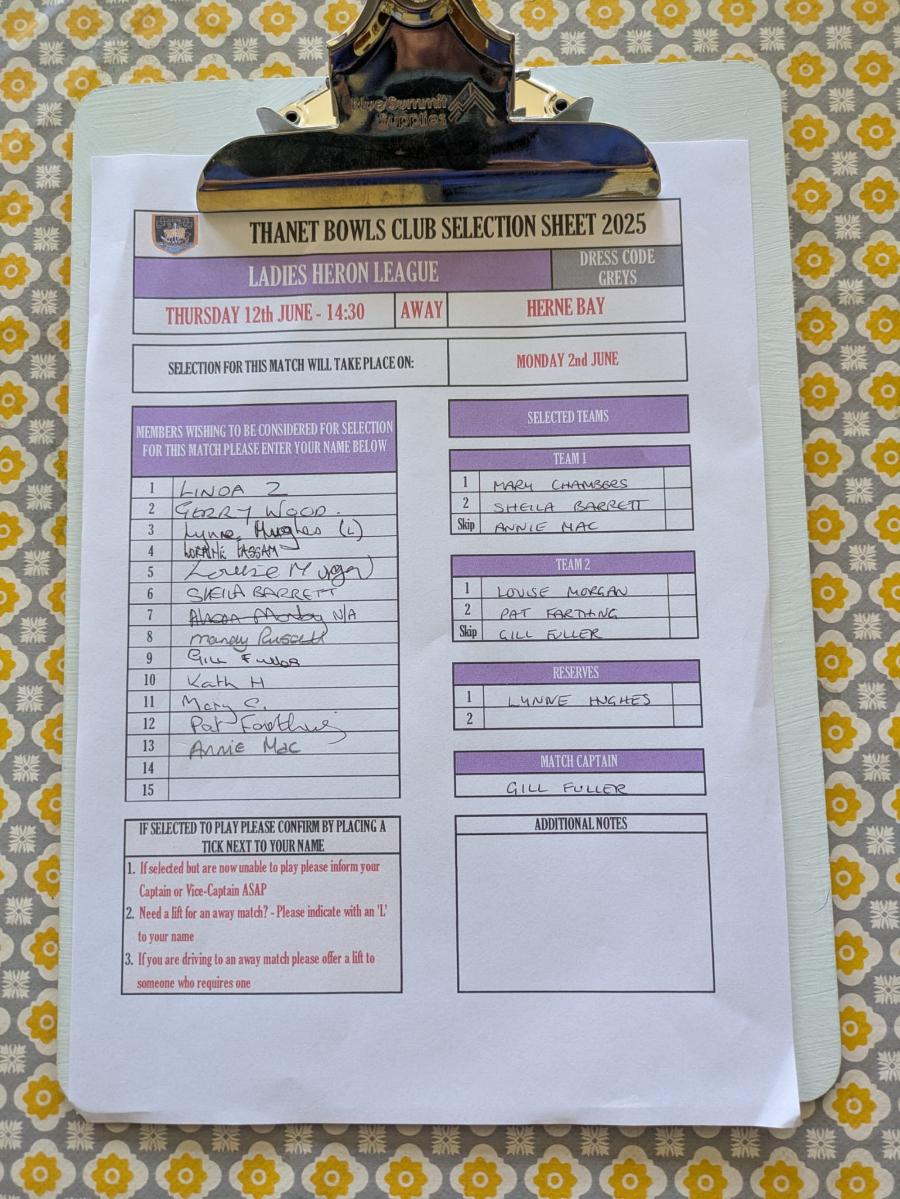 Blue Summit
Supplies
THANET BOWLS CLUB SELECTION SHEET 2025
LADIES HERON LEAGUE
DRESS CODE
GREYS
THURSDAY 12th JUNE - 14:30 AWAY HERNE BAY
SELECTION FOR THIS MATCH WILL TAKE PLACE ON: MONDAY 2nd JUNE
MEMBERS WISHING TO BE CONSIDERED FOR SELECTION
FOR THIS MATCH PLEASE ENTER YOUR NAME BELOW
1 LINDA Z
2 GERRY WOOD.
3 Lynne Hughes (L)
4 LORAINE
5 Louise Morgan
6 SHEILA BARRETT
7 N/A
8 Mandy Russell
9 Gill Fuller
10 Kath H
11 Mary C.
12 Pat Farthing
13 Annie Mac
14
15
SELECTED TEAMS
TEAM 1
1 MARY CHAMBERS
2 SHEILA BARRETT
Skip ANNIE MAC
TEAM 2
1 LOUISE MORGAN
2 PAT FARTHING
Skip GILL FULLER
RESERVES
1 LYNNE HUGHES
2
MATCH CAPTAIN
GILL FULLER
IF SELECTED TO PLAY PLEASE CONFIRM BY PLACING A
TICK NEXT TO YOUR NAME
1. If selected but are now unable to play please inform your
Captain or Vice-Captain ASAP
2. Need a lift for an away match? - Please indicate with an 'L'
to your name
3. If you are driving to an away match please offer a lift to
someone who requires one
ADDITIONAL NOTES